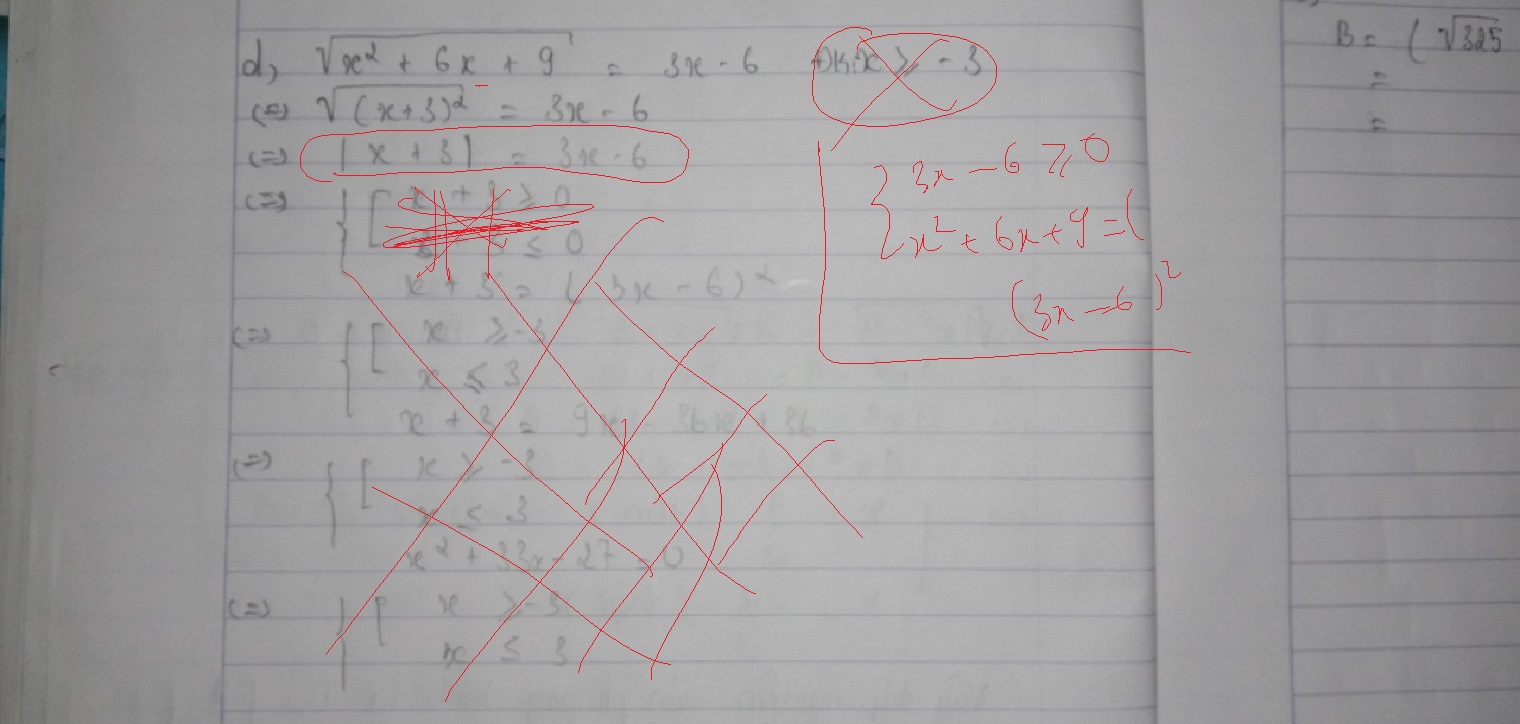 d, √(x² + 6x + 9) = 3x - 6 ĐK: x ≥ -3
(=) √((x+3)²) = 3x - 6
(=) |x + 3| = 3x - 6
(=) { [ x + 3 ≥ 0
≤ 0
x + 3 = (3x - 6)²
(=) { [ x ≥ -3
x ≤ 3
x + 3 = 9x² - 36x + 36
(=) { [ x ≥ -3
x ≤ 3
x² + 33x - 27 = 0
(=) { [ x ≥ -3
x ≤ 3
{ 3x - 6 ≥ 0
x² + 6x + 9 = (
(3x - 6)²
B = ( √325
=
=